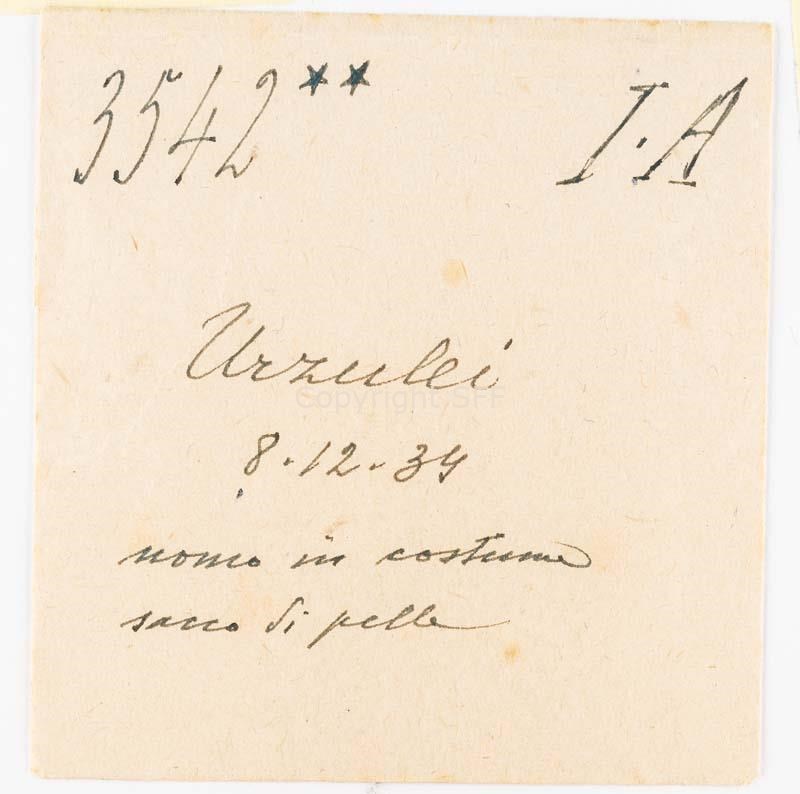 3542** I.A
Urzulei
Copyright SFF
8.12.34
uomo in costume
sacco di pelle